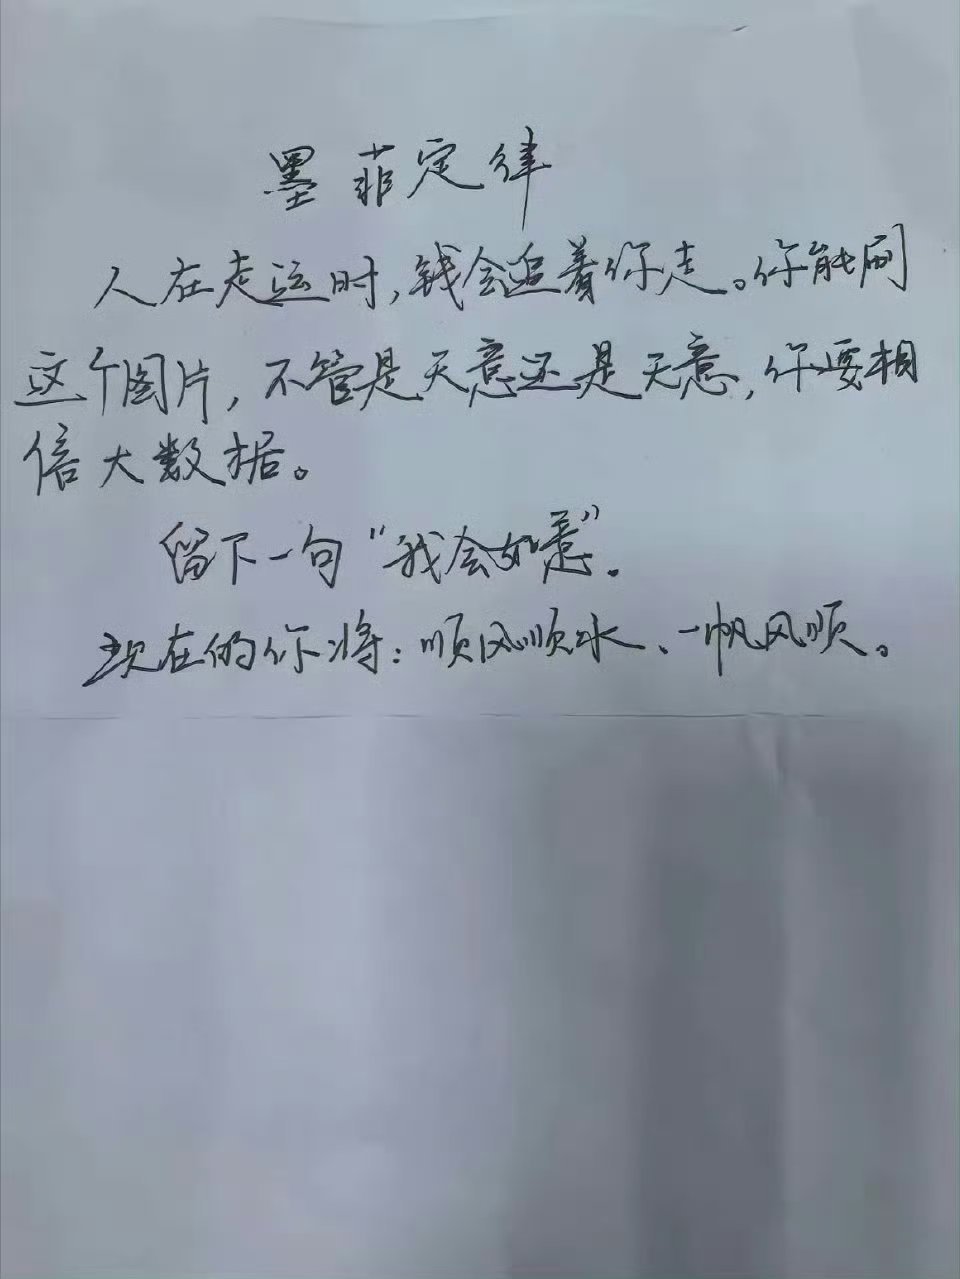 墨菲定律
人在走运时,钱会追着你走。你能刷
这个图片,不管是天意还是天意,你要相
信大数据。
留下一句“我会如意”.
现在的你将:顺风顺水、一帆风顺。